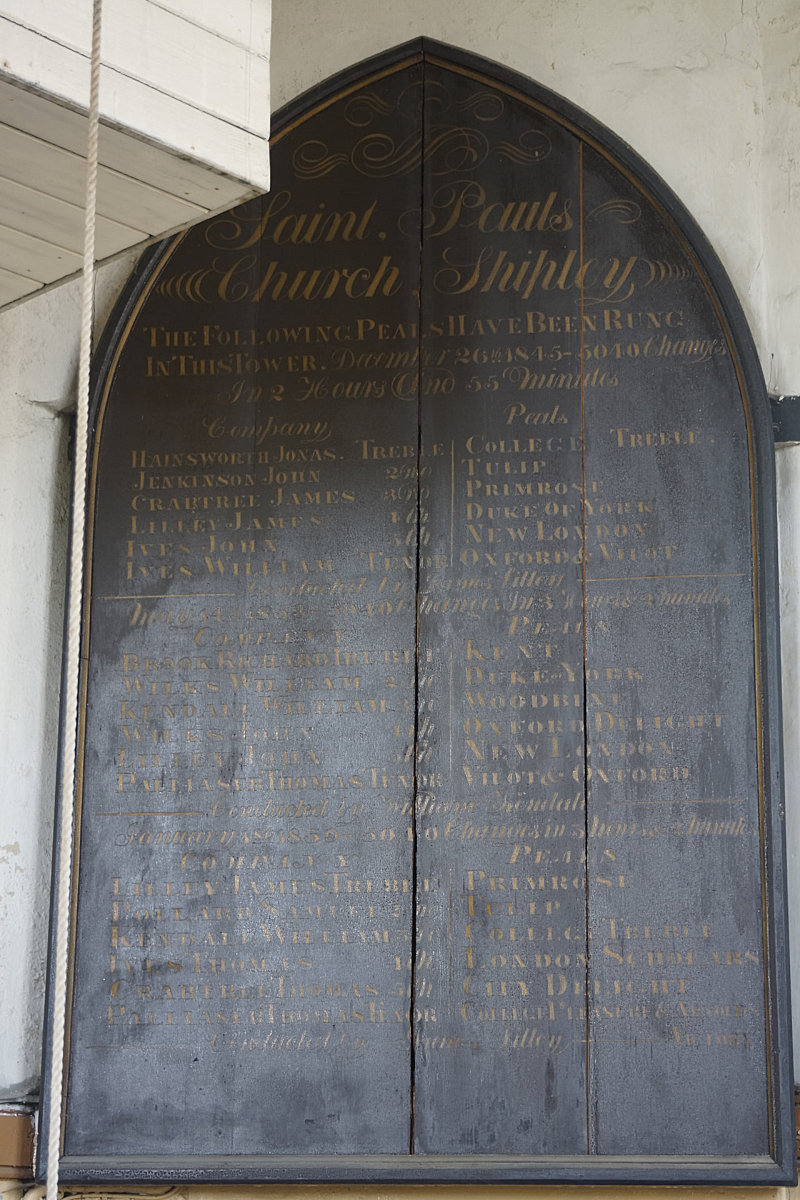 Saint. Pauls
Church. Shipley
THE FOLLOWING PEALS HAVE BEEN RUNG
IN THIS TOWER. December 26th 1845-5040 Changes
In 2 Hours And 55 Minutes
Company Peals
HAINSWORTH JONAS. TREBLE COLLEGE TREBLE.
JENKINSON JOHN 2ND TULIP
CRABTREE JAMES 3RD PRIMROSE
LILLEY JAMES 4th DUKE OF YORK
IVES JOHN 5th NEW LONDON
IVES WILLIAM TENOR OXFORD & VILOT
Conducted by James Lilley
5040 Changes In 3 Hours & Minutes
COMPANY PEALS
BROOK RICHARD TREBLE KENT
WILKS WILLIAM 2nd DUKE OF YORK
KENDALL WILLIAM 3rd WOODBINE
WILKS JOHN 4th OXFORD DELIGHT
LILLEY JOHN 5th NEW LONDON
THOMAS TENOR VILOT & OXFORD
Conducted by William Kendall
January 1855-5040 Changes in 3 hours & Minutes
COMPANY PEALS
LILLEY JAMES TREBLE PRIMROSE
POLLARD SAMUEL 2nd TULIP
KENDALL WILLIAM 3rd COLLEGE TREBLE
IVES THOMAS 4th LONDON SCHOLARS
CRABTREE THOMAS 5th CITY DELIGHT
THOMAS TENOR COLLEGE PLEASURE & ARNOLDS
Conducted by James Lilley VICTORY